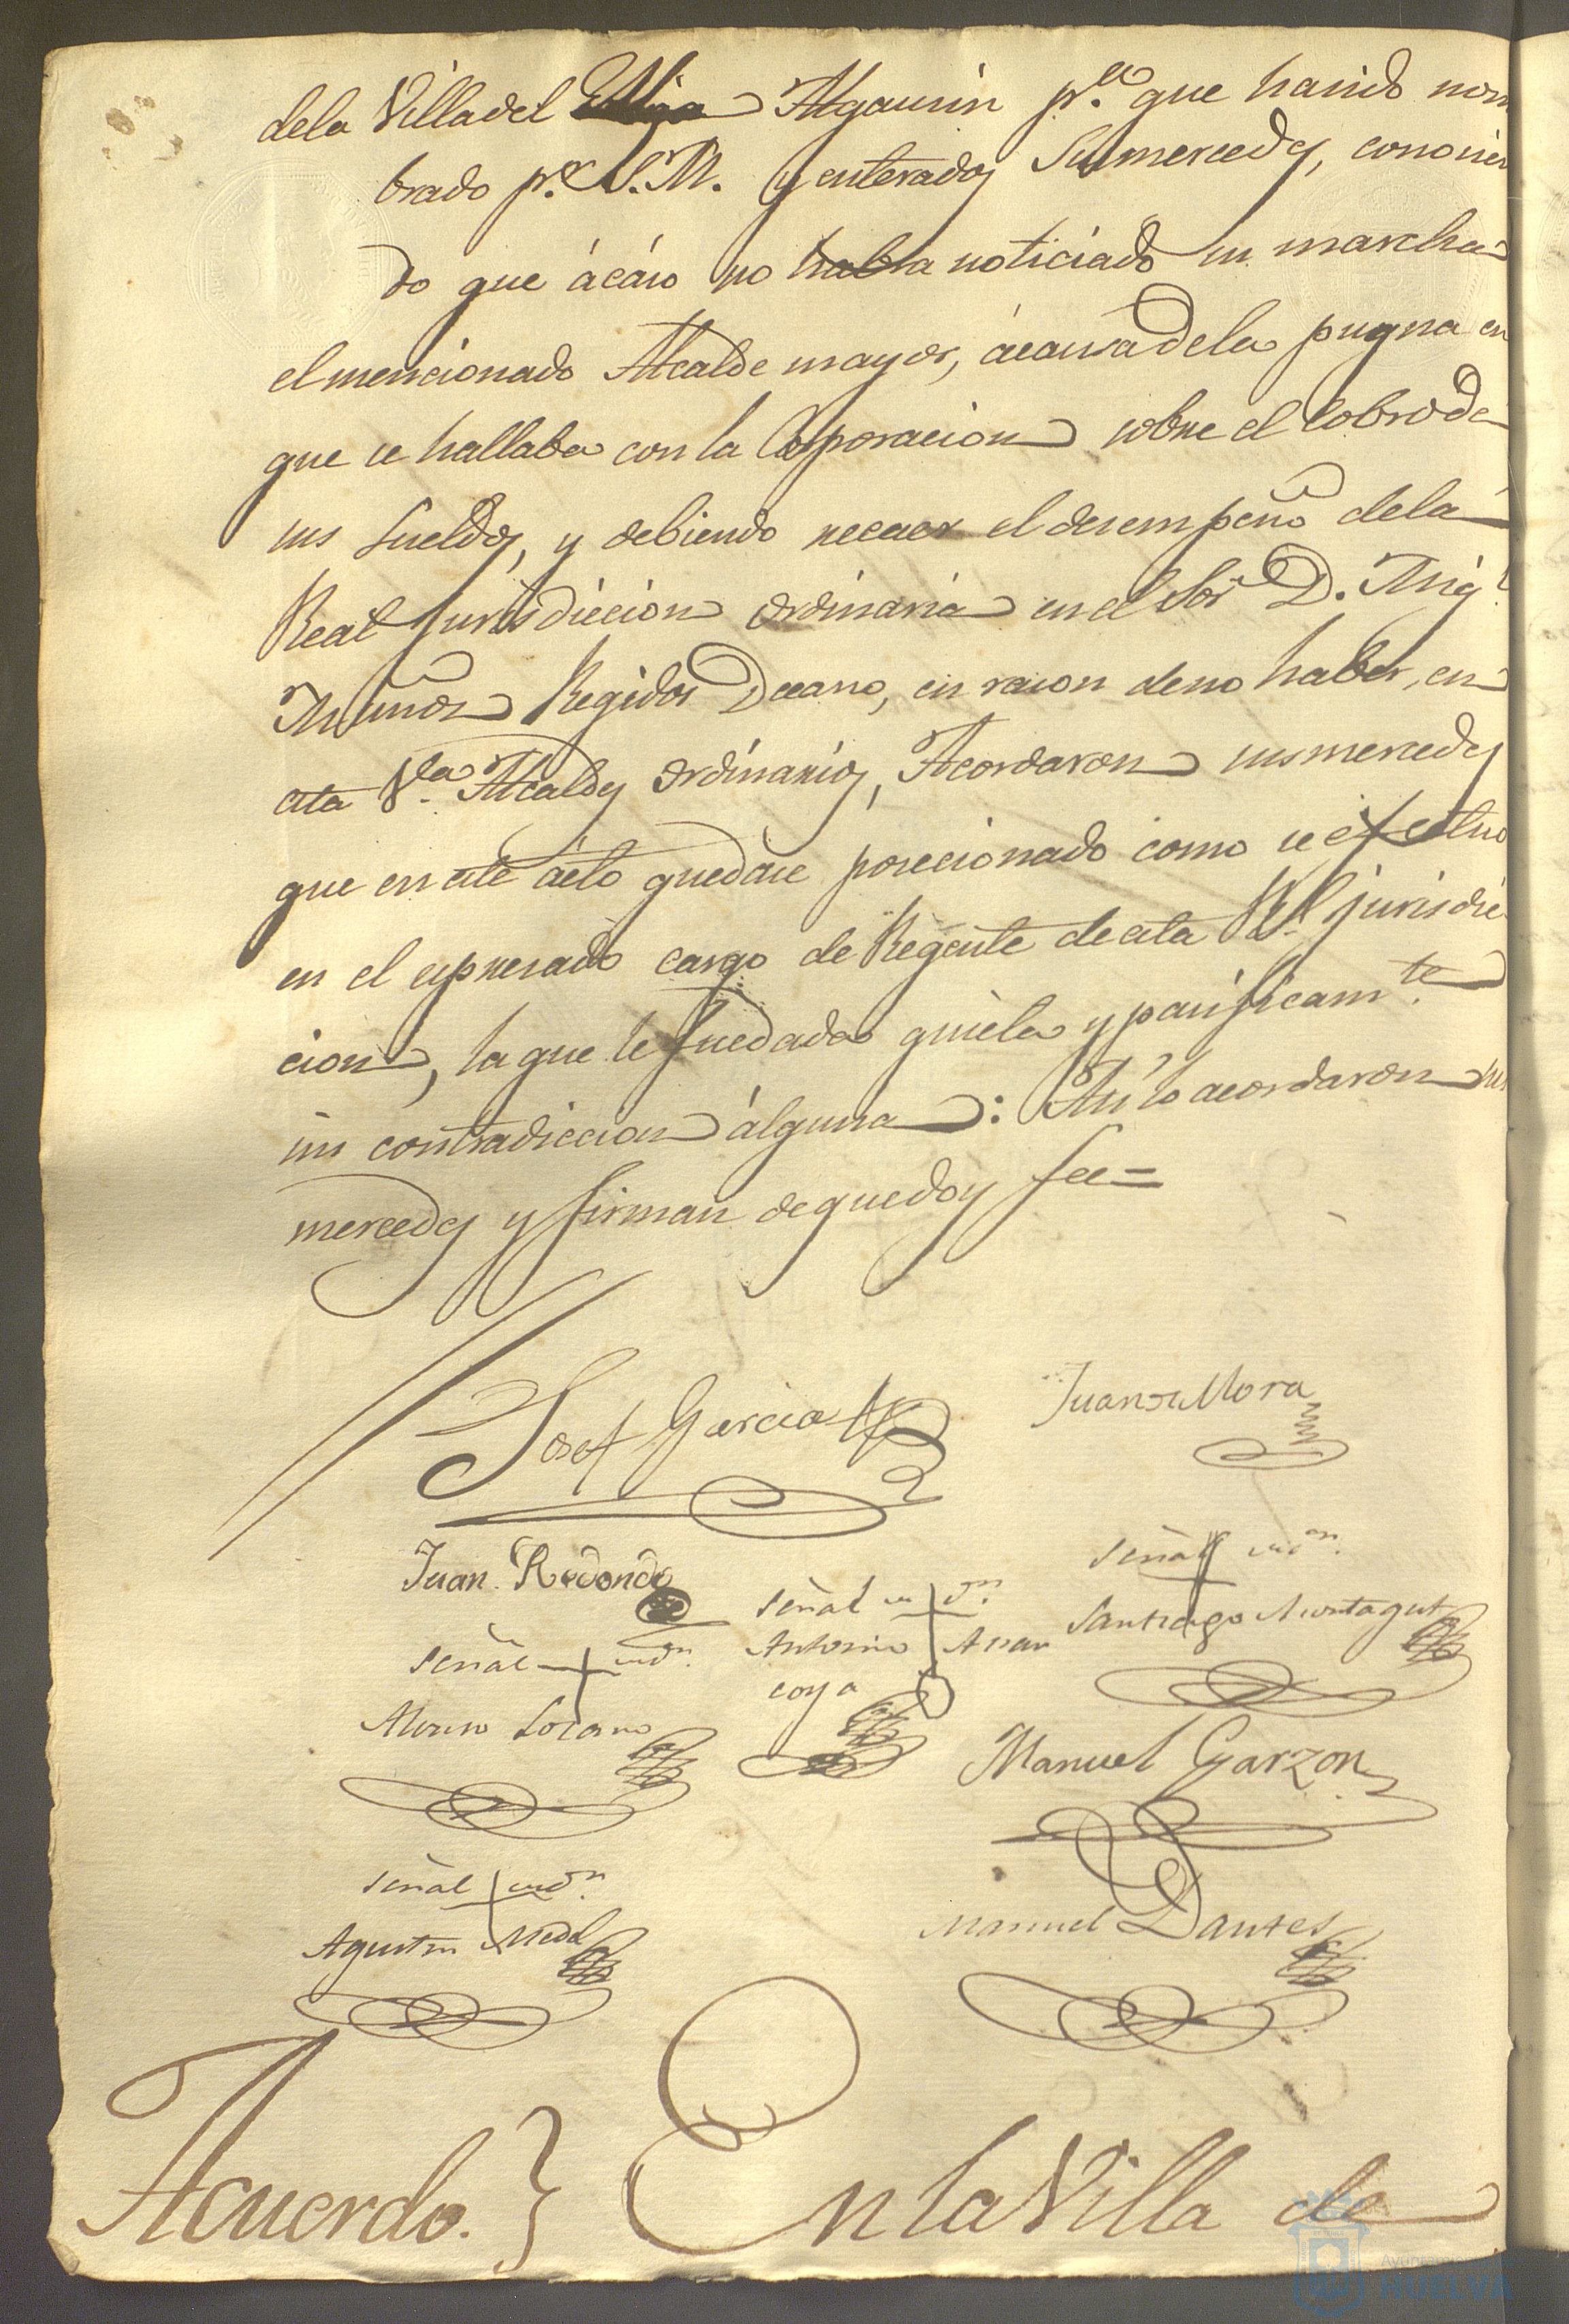 dela Villa del Algaurin p.ª que ha sido nom
brado p.r S.M. y enterados Susmercedes, conocien
do que ácáso no habra noticiado su marcha
el mencionado Alcalde mayor, ácausa dela pugna en
que se hallaba con la Corporacion sobre el cobro de
sus sueldos, y debiendo recaer el desempeño dela
Real Jurisdiccion ordinaria en el Sor D. Mig.l
Muñoz Regidor Decano, en razon de no haber, en
esta V.la Alcaldes ordinarios, Acordaron susmercedes
que en este ácto quedase posecionado como se efectuo
en el espresado cargo de Regente de esta R.l jurisdic
cion, la que le fue dada quiéta y pacificam.te
sin contradiccion álguna: Así lo acordaron sus
mercedes y firman de que doy fee=
Josef Garcia
Juan de Mora
Juan Redondo
Señal de
Señal de
Santiago Montagut
Señal de
Antonio Aran
coya
Alonso Lozano
Manuel Garzon
Señal de
Agustin Medel
Manuel Dantes
Acuerdo. } En la Villa de
Ayuntamiento
HUELVA